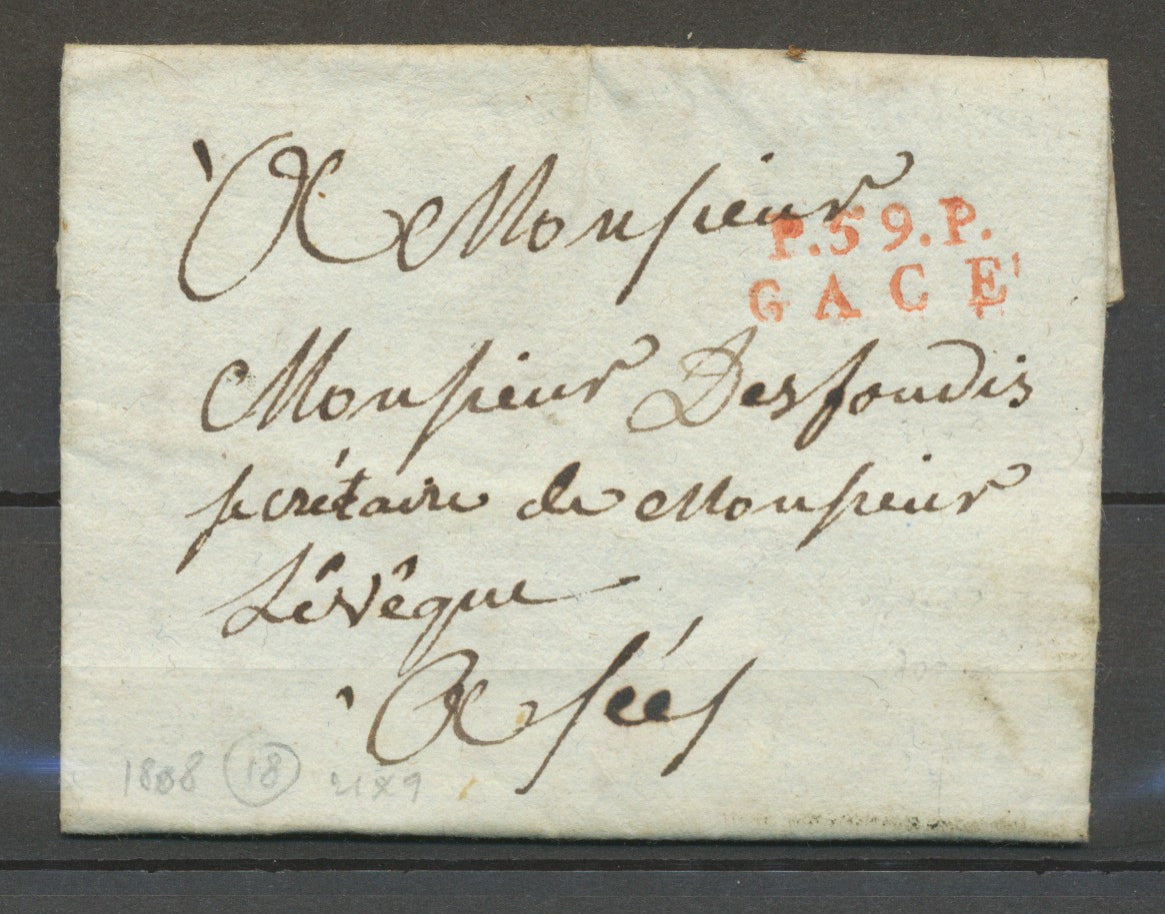 A Monsieur
P.59.P.
GACE
Monsieur Desfoudis
secrétaire de Monsieur
Lévêque
A séés
1808 18 21x9